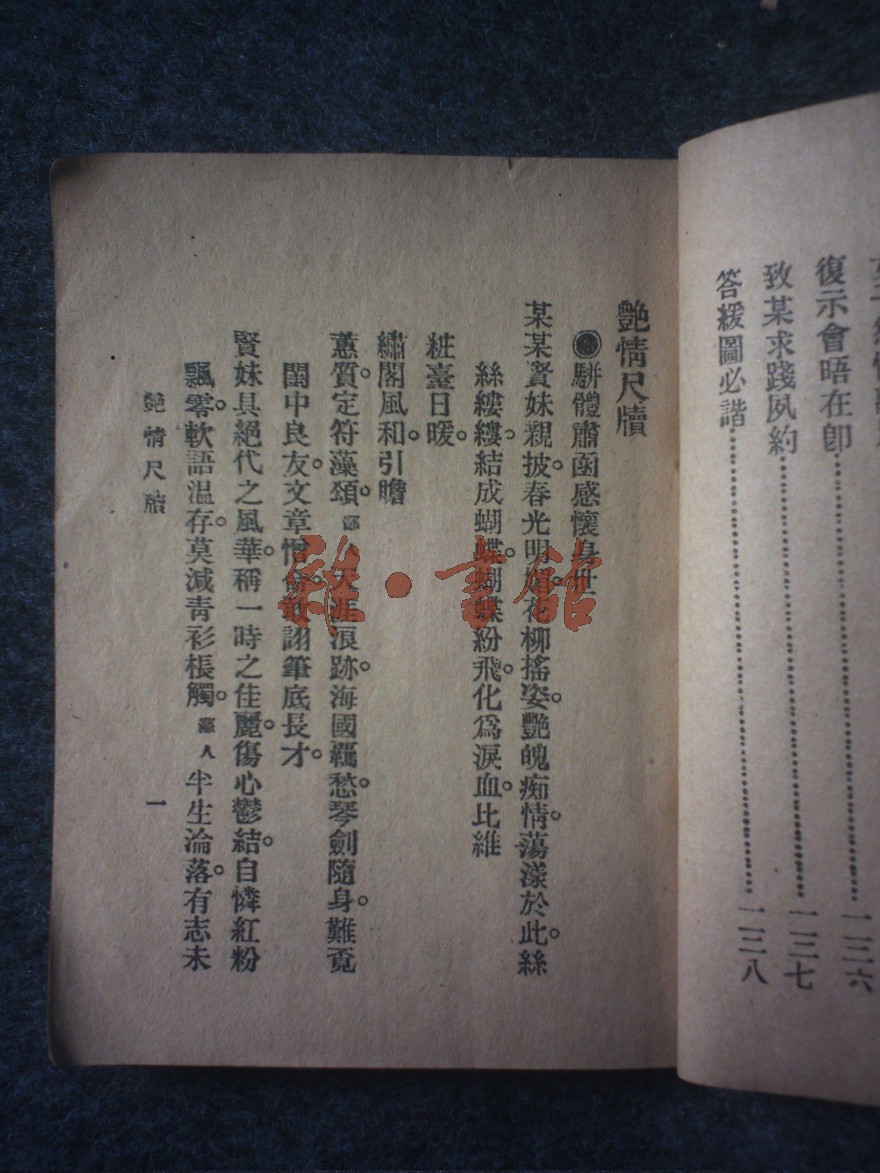 復示會晤在卽………………一三六
致某求踐夙約………………一三七
答緩圖必諧………………一三八
艷情尺牘
◉駢體肅函感懷身世
某某賢妹親披。春光明媚。花柳搖姿。艷魄痴情。蕩漾於此。絲
絲縷縷。結成蝴蝶。蝴蝶紛飛。化爲淚血。比維
粧臺日暖。
繡閣風和。引瞻
蕙質。定符藻頌。鄙人天涯浪跡。海國羈愁。琴劍隨身。難覓
閨中良友。文章憎命。敢詡筆底長才。
賢妹具絕代之風華。稱一時之佳麗。傷心鬱結。自憐紅粉
飄零。軟語温存。莫減靑衫棖觸。鄙人半生淪落。有志未
艷情尺牘 一
雜·書館